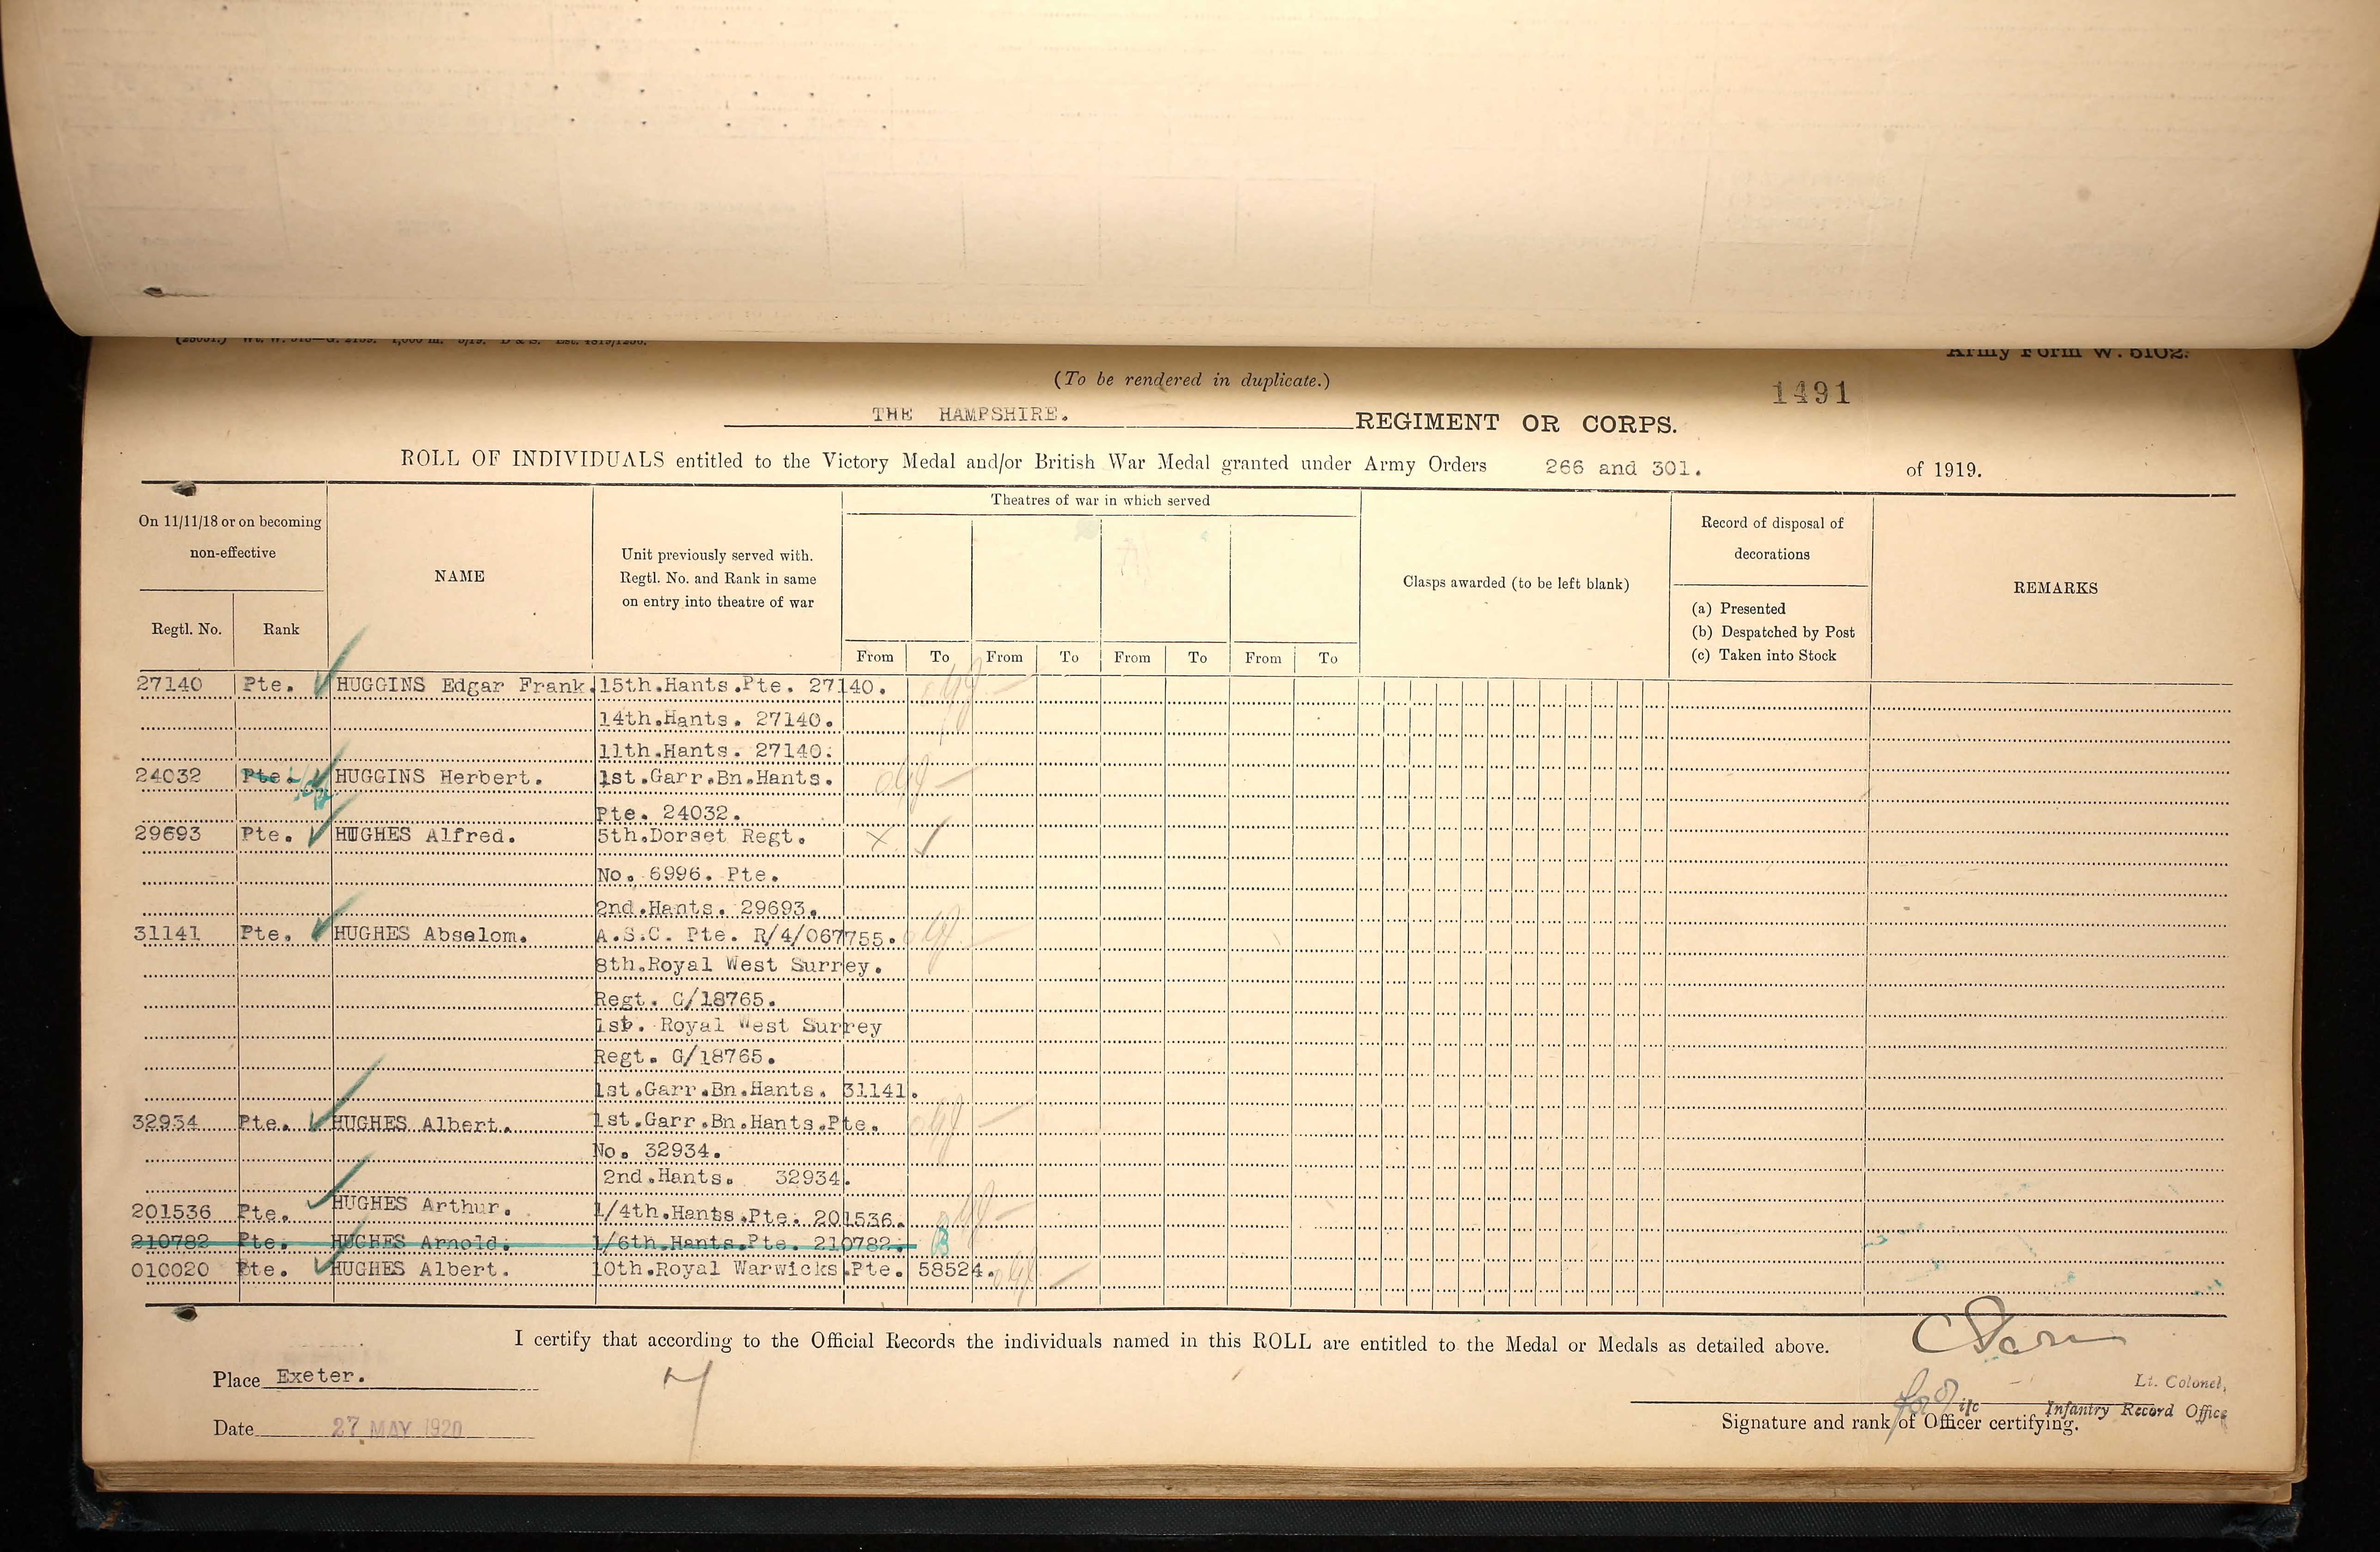 (28031.) Wt. W. 518—G. 2139. 1,000 m. 5/19. D & S. Est. 4819/1250.
Army Form W. 5102.
(To be rendered in duplicate.)
1491
THE HAMPSHIRE. REGIMENT OR CORPS.
ROLL OF INDIVIDUALS entitled to the Victory Medal and/or British War Medal granted under Army Orders 266 and 301. of 1919.
On 11/11/18 or on becoming
non-effective
Regtl. No. Rank
NAME
Unit previously served with.
Regtl. No. and Rank in same
on entry into theatre of war
Theatres of war in which served
From To From To From To From To
Clasps awarded (to be left blank)
Record of disposal of
decorations
(a) Presented
(b) Despatched by Post
(c) Taken into Stock
REMARKS
27140 Pte. HUGGINS Edgar Frank. 15th.Hants.Pte. 27140.
14th.Hants. 27140.
11th.Hants. 27140.
24032 Pte. HUGGINS Herbert. 1st.Garr.Bn.Hants.
Pte. 24032.
29693 Pte. HUGHES Alfred. 5th.Dorset Regt. X
No. 6996. Pte.
2nd.Hants. 29693.
31141 Pte. HUGHES Abselom. A.S.C. Pte. R/4/067755.
8th.Royal West Surrey.
Regt. G/18765.
1st. Royal West Surrey
Regt. G/18765.
1st.Garr.Bn.Hants. 31141.
32934 Pte. HUGHES Albert. 1st.Garr.Bn.Hants.Pte.
No. 32934.
2nd.Hants. 32934.
201536 Pte. HUGHES Arthur. 1/4th.Hants.Pte. 201536.
210782 Pte. HUGHES Arnold. 1/6th.Hants.Pte. 210782.
010020 Pte. HUGHES Albert. 10th.Royal Warwicks.Pte. 58524.
I certify that according to the Official Records the individuals named in this ROLL are entitled to the Medal or Medals as detailed above.
Place Exeter.
Date 27 MAY 1920
Lt. Colonel,
for i/c Infantry Record Office
Signature and rank of Officer certifying.